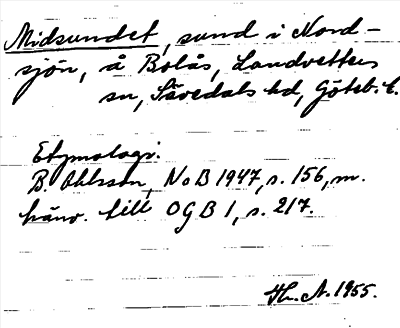 Midsundet, sund i Nord-
sjön, å Bolås, Landvetters
sn, Sävedals hd, Göteb. l.
Etymologi.
B. Ohlsson, NoB 1947, s. 156, m.
hänv. till OGB 1, s. 217.
Hr. A. 1955.